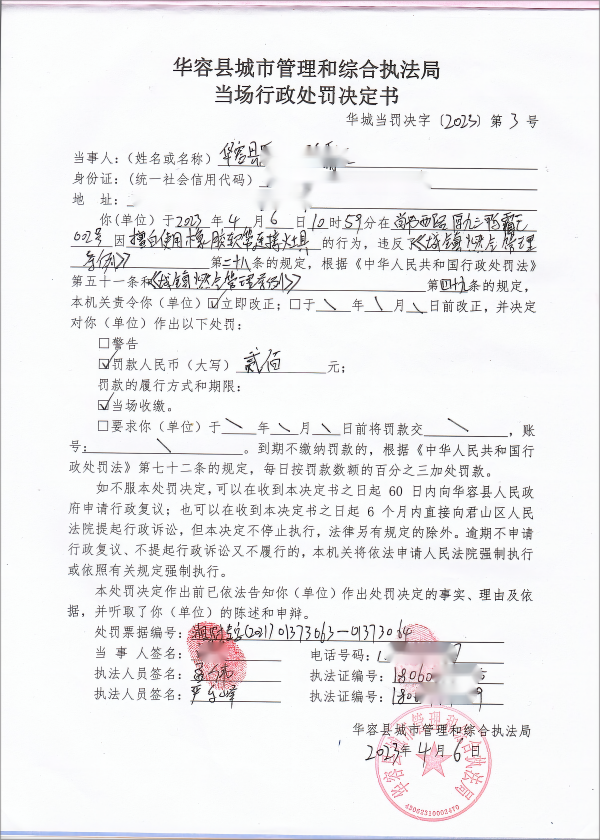 华容县城市管理和综合执法局
当场行政处罚决定书
华城当罚决字〔2023〕第 3 号
当事人：（姓名或名称）华容县
身份证：（统一社会信用代码）
地 址：
你(单位)于2023年4月6日10时59分在
002号 因擅自使用橡胶软管连接灶具 的行为，违反了《城镇燃气管理
条例》 第二十八条的规定，根据《中华人民共和国行政处罚法》
第五十一条和《城镇燃气管理条例》 第四十九条的规定，
本机关责令你（单位）☑立即改正；□于\年\月\日前改正，并决定
对你（单位）作出以下处罚：
□警告
☑罚款人民币（大写）贰佰 元；
罚款的履行方式和期限：
☑当场收缴。
□要求你（单位）于\年\月\日前将罚款交 \ ，账
号： \ 。到期不缴纳罚款的，根据《中华人民共和国行
政处罚法》第七十二条的规定，每日按罚款数额的百分之三加处罚款。
如不服本处罚决定，可以在收到本决定书之日起 60 日内向华容县人民政
府申请行政复议；也可以在收到本决定书之日起 6 个月内直接向君山区人民
法院提起行政诉讼，但本决定不停止执行，法律另有规定的除外。逾期不申请
行政复议、不提起行政诉讼又不履行的，本机关将依法申请人民法院强制执行
或依照有关规定强制执行。
本处罚决定作出前已依法告知你（单位）作出处罚决定的事实、理由及依
据，并听取了你（单位）的陈述和申辩。
处罚票据编号：湘财 (2021) 01373063—01373064
当 事 人签名： 电话号码：1 7
执法人员签名： 执法证编号：18060 5
执法人员签名：严 峰 执法证编号：180 9
华容县城市管理和综合执法局
2023年4月6日
华容县城市管理和综合执法局
43062310003470